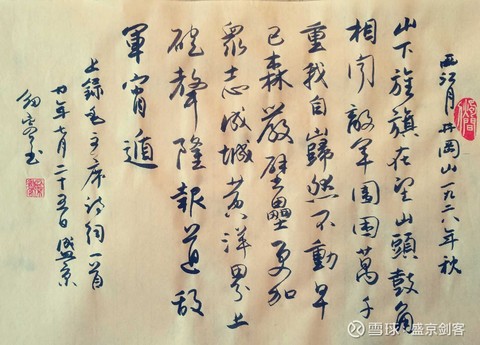 西江月 井岡山一九二八年秋
山下旌旗在望山頭鼓角
相闻敵军围困萬千
重我自巋然不動早
已森嚴壁壘更加
眾志成城黄洋界上
砲聲隆報道敌
軍宵遁
上錄毛主席诗词一首
廿年七月二十五日盛京
书
雪球：盛京剑客